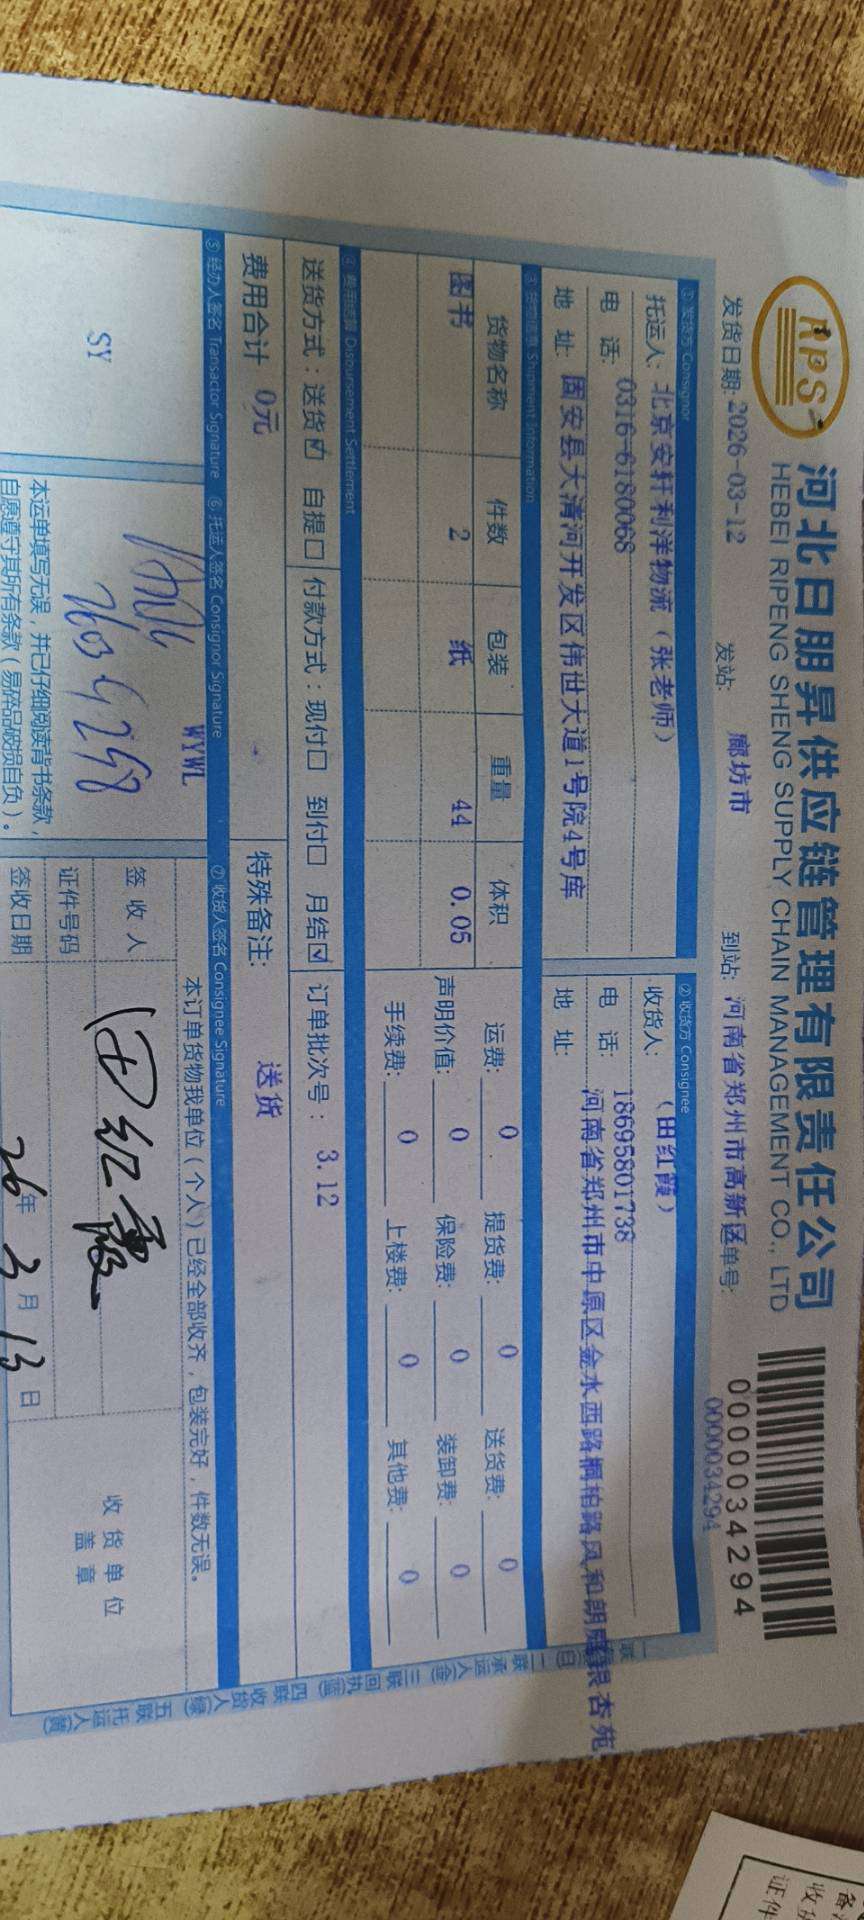 RPS
河北日朋昇供应链管理有限责任公司
HEBEI RIPENG SHENG SUPPLY CHAIN MANAGEMENT CO., LTD
发货日期: 2026-03-12 发站: 廊坊市 到站: 河南省郑州市高新区 单号:
0000034294
0000034294
① 发货方 Consignor
托运人: 北京安轩利洋物流（张老师）
电 话: 0316-6180068
地 址: 固安县大清河开发区伟世大道1号院4号库
② 收货方 Consignee
收货人: （田红霞）
电 话: 18695801738
地 址: 河南省郑州市中原区金水西路桐柏路风和朗庭银杏苑
③ 货物信息 Shipment Information
货物名称 件数 包装 重量 体积
图书 2 纸 44 0.05
运费: 0 提货费: 0 送货费: 0
声明价值: 0 保险费: 0 装卸费: 0
手续费: 0 上楼费: 0 其他费: 0
④ 费用结算 Disbursement Settlement
送货方式：送货☑ 自提口 付款方式：现付口 到付口 月结☑ 订单批次号： 3.12
费用合计 0元
特殊备注: 送货
⑤ 经办人签名 Transactor Signature ⑥ 托运人签名 Consignor Signature ⑦ 收货人签名 Consignee Signature
SY
WYWL
本运单填写无误，并已仔细阅读背书条款，
自愿遵守其所有条款（易碎品破损自负）。
本订单货物我单位（个人）已经全部收齐，包装完好，件数无误。
签 收 人 田红霞
证件号码
签收日期 26年 3月 13日
收 货 单 位
盖 章
联 二联 承运人 三联 回执 四联 收货人 五联 托运人